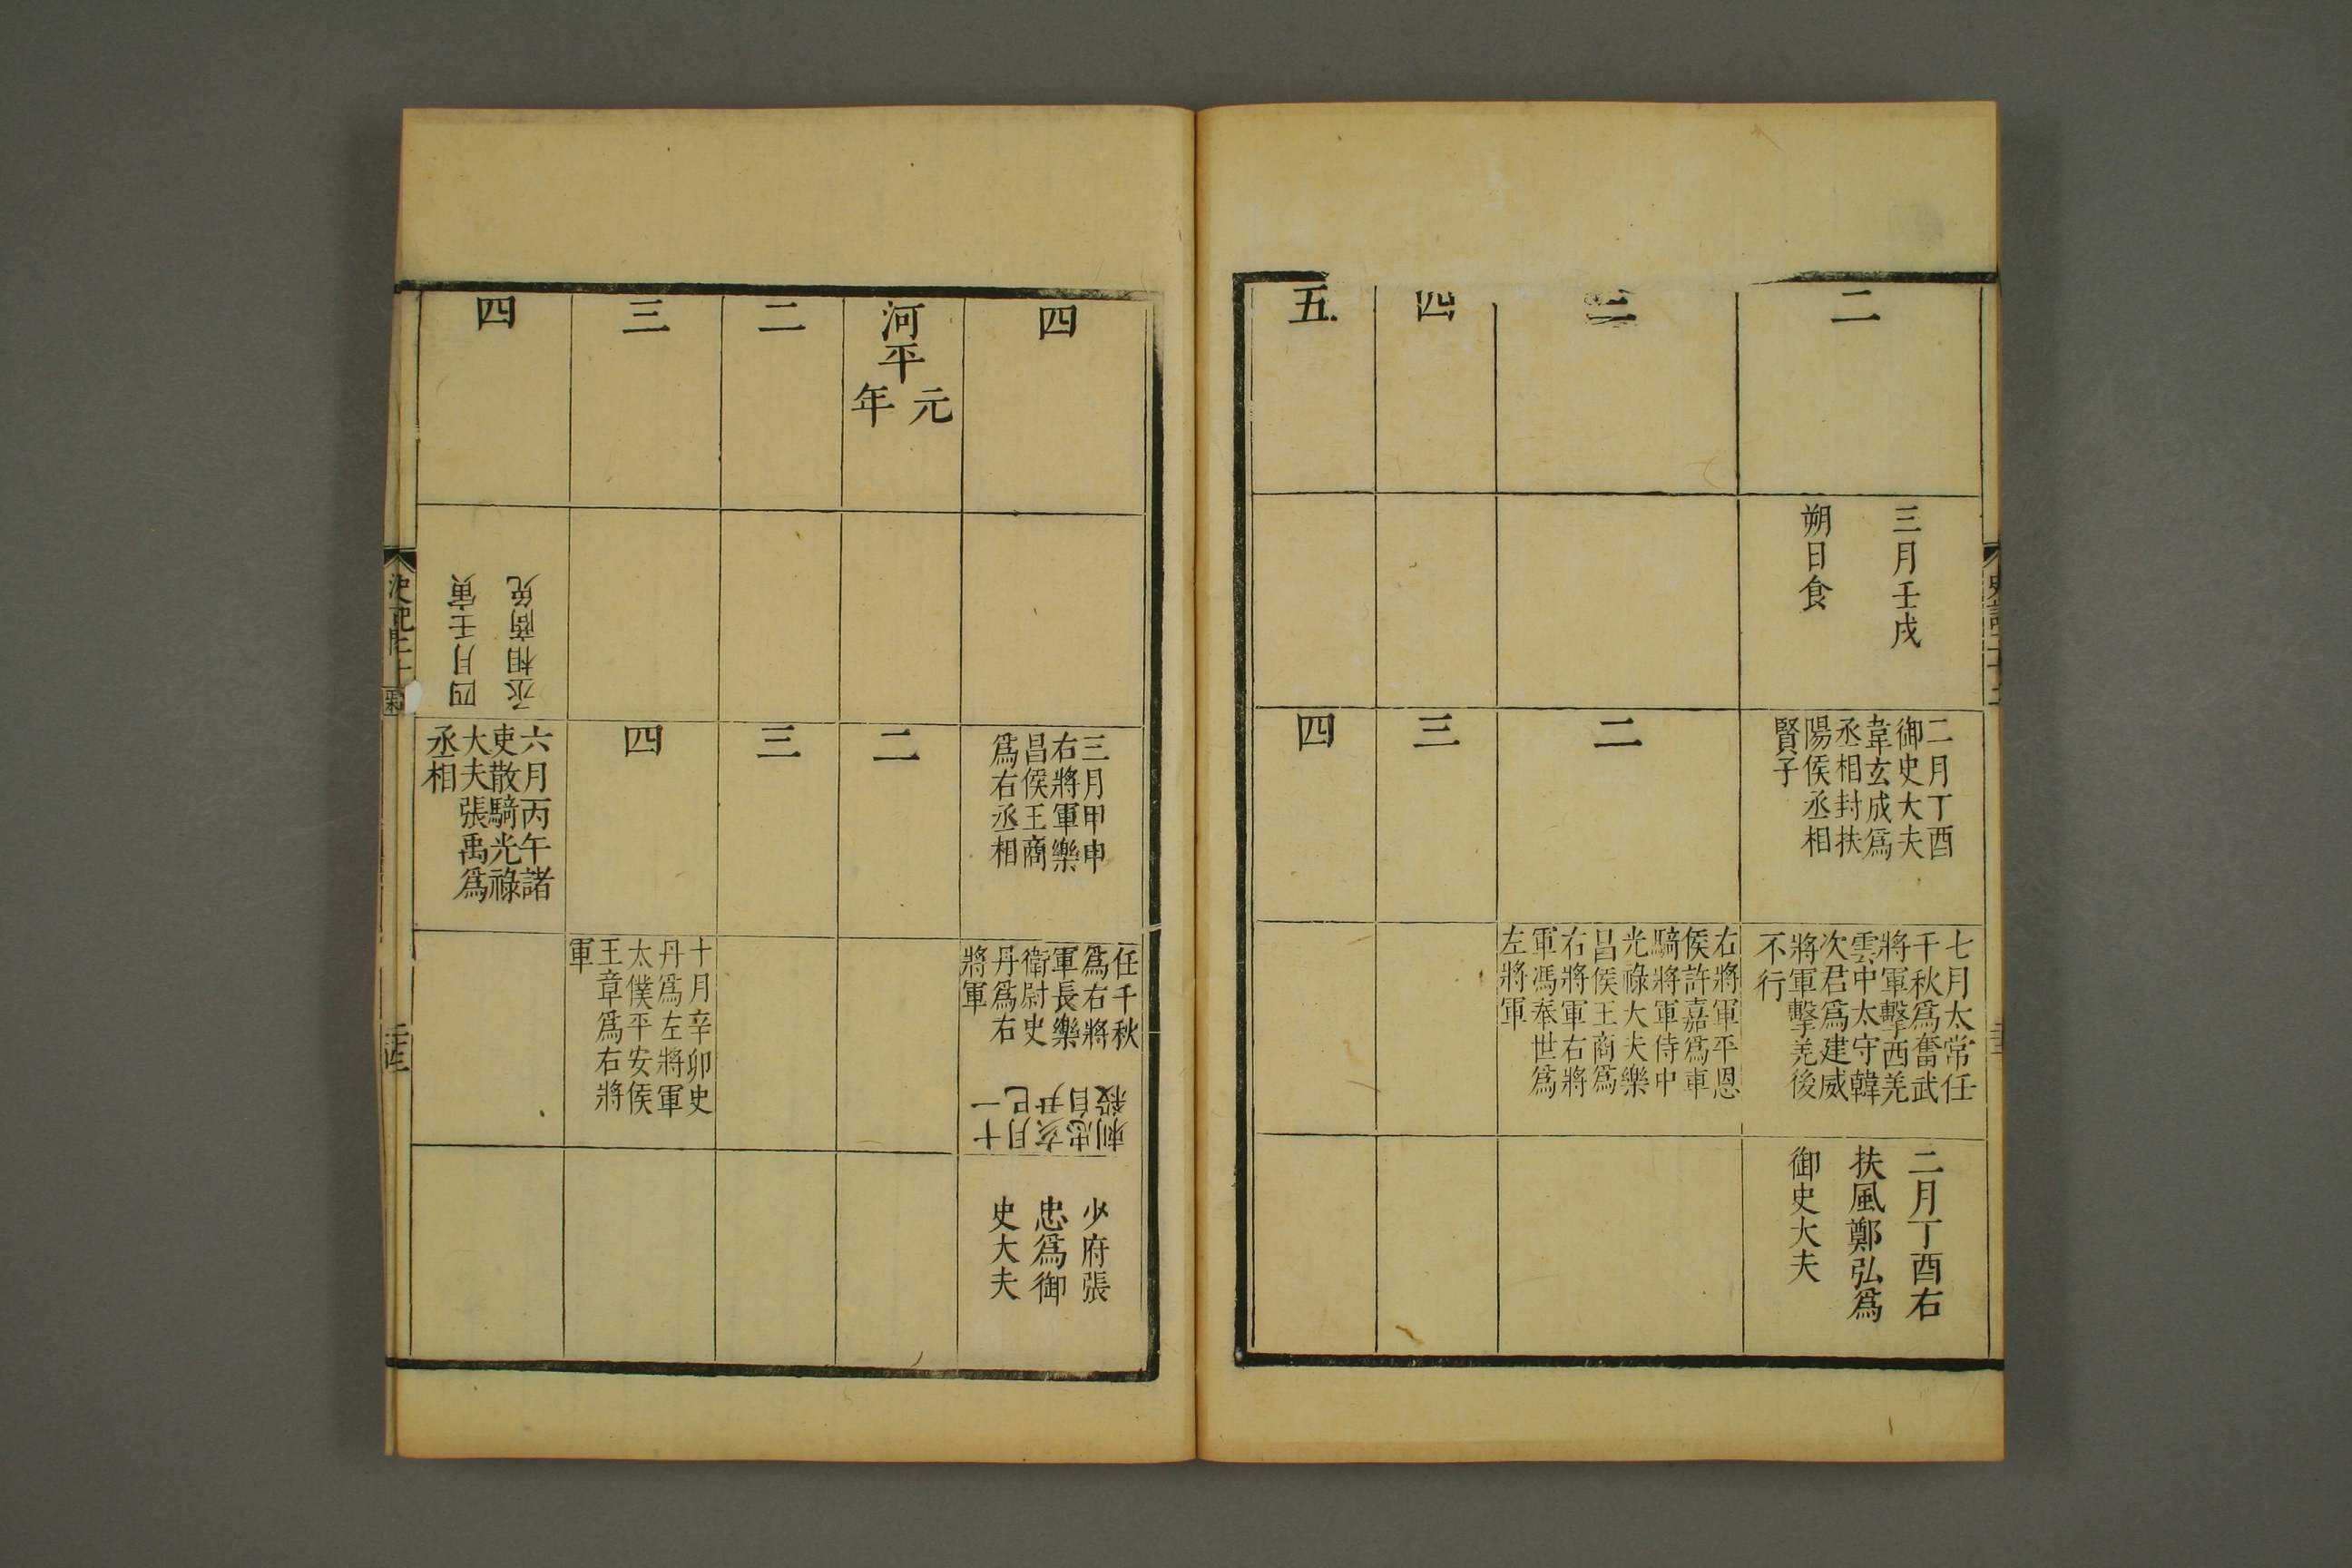 二
三月壬戌
朔日食
二月丁酉
御史大夫
韋玄成爲
丞相封扶
陽侯丞相
賢子
七月太常任
千秋爲奮武
將軍擊西羌
雲中太守韓
次君爲建威
將軍擊羌後
不行
二月丁酉右
扶風鄭弘爲
御史大夫
三
二
右將軍平恩
侯許嘉爲車
騎將軍侍中
光祿大夫樂
昌侯王商爲
右將軍右將
軍馮奉世爲
左將軍
四
三
五
四
四
三月甲申
右將軍樂
昌侯王商
爲右丞相
任千秋
爲右將
軍長樂
衛尉史
丹爲右
將軍
十一
月已
亥尹
忠自
刺殺
少府張
忠爲御
史大夫
河平元年
二
二
三
三
四
十月辛卯史
丹爲左將軍
太僕平安侯
王章爲右將
軍
四
四月壬寅
丞相商免
六月丙午諸
吏散騎光祿
大夫張禹爲
丞相